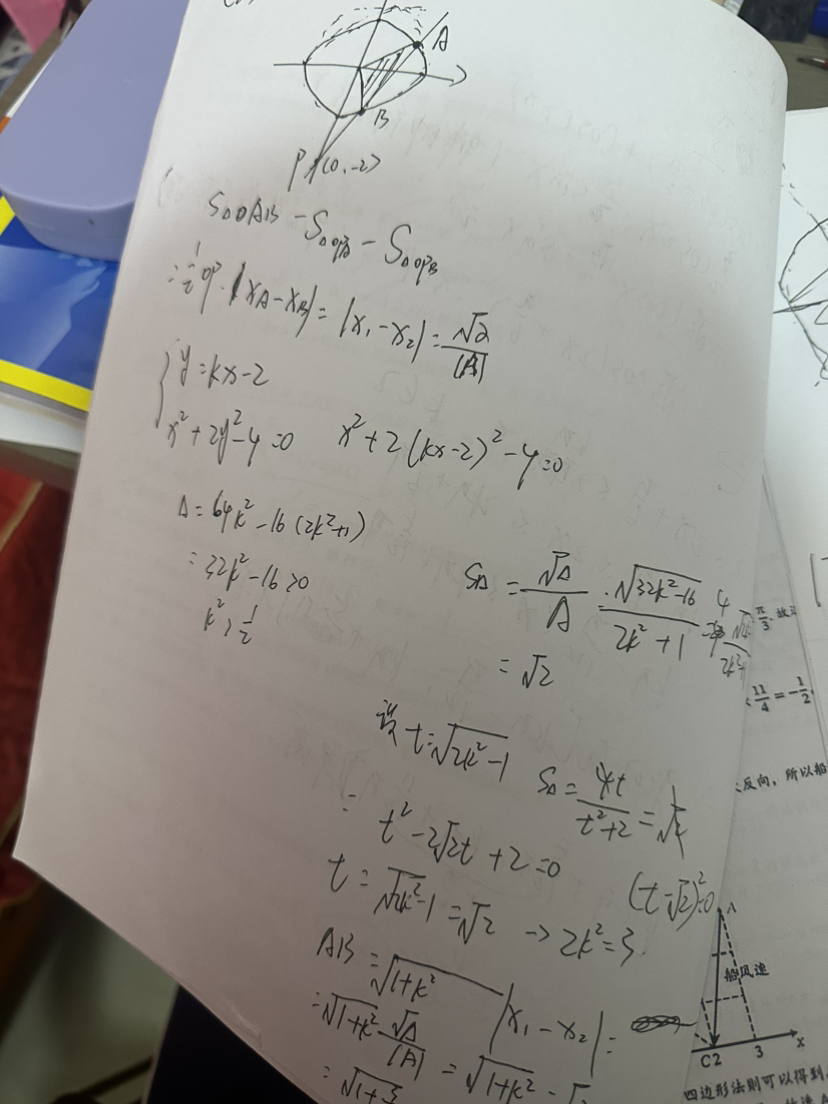 A
B
P (0,-2)
S△OAB = S△OPA - S△OPB
= 1/2 OP·|xA-xB| = |x₁-x₂| = √Δ/|A|
{ y=kx-2
x²+2y²-4=0 x²+2(kx-2)²-4=0
Δ=64k²-16(2k²+1)
=32k²-16>0
k²>1/2
S△ = √Δ/A = √(32k²-16)/(2k²+1)
=√2
设 t=√(2k²-1) S△ = 4t/(t²+2) = √2
t²-2√2t+2=0 (t-√2)²=0
t=√(2k²-1)=√2 → 2k²=3.
AB=√(1+k²) |x₁-x₂|=
=√(1+k²)·√Δ/|A| = √(1+k²)
π/3, 故
11/4=-1/2
反向, 所以船
A
船风速
C2 3 x
四边形法则可以得到,